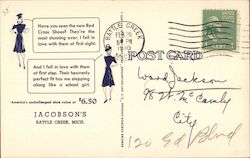 Have you seen the new Red
Cross Shoes? They're the
most stunning ever. I fell in
love with them at first sight.
And I fell in love with them
at first step. Their heavenly
perfect fit has me stepping
along like a school girl.
America's unchallenged shoe value at $6.50
JACOBSON'S
BATTLE CREEK, MICH.
BATTLE CREEK
FEB
PM
POST CARD
Jackson
98 W. McCamly
City
120
Blvd